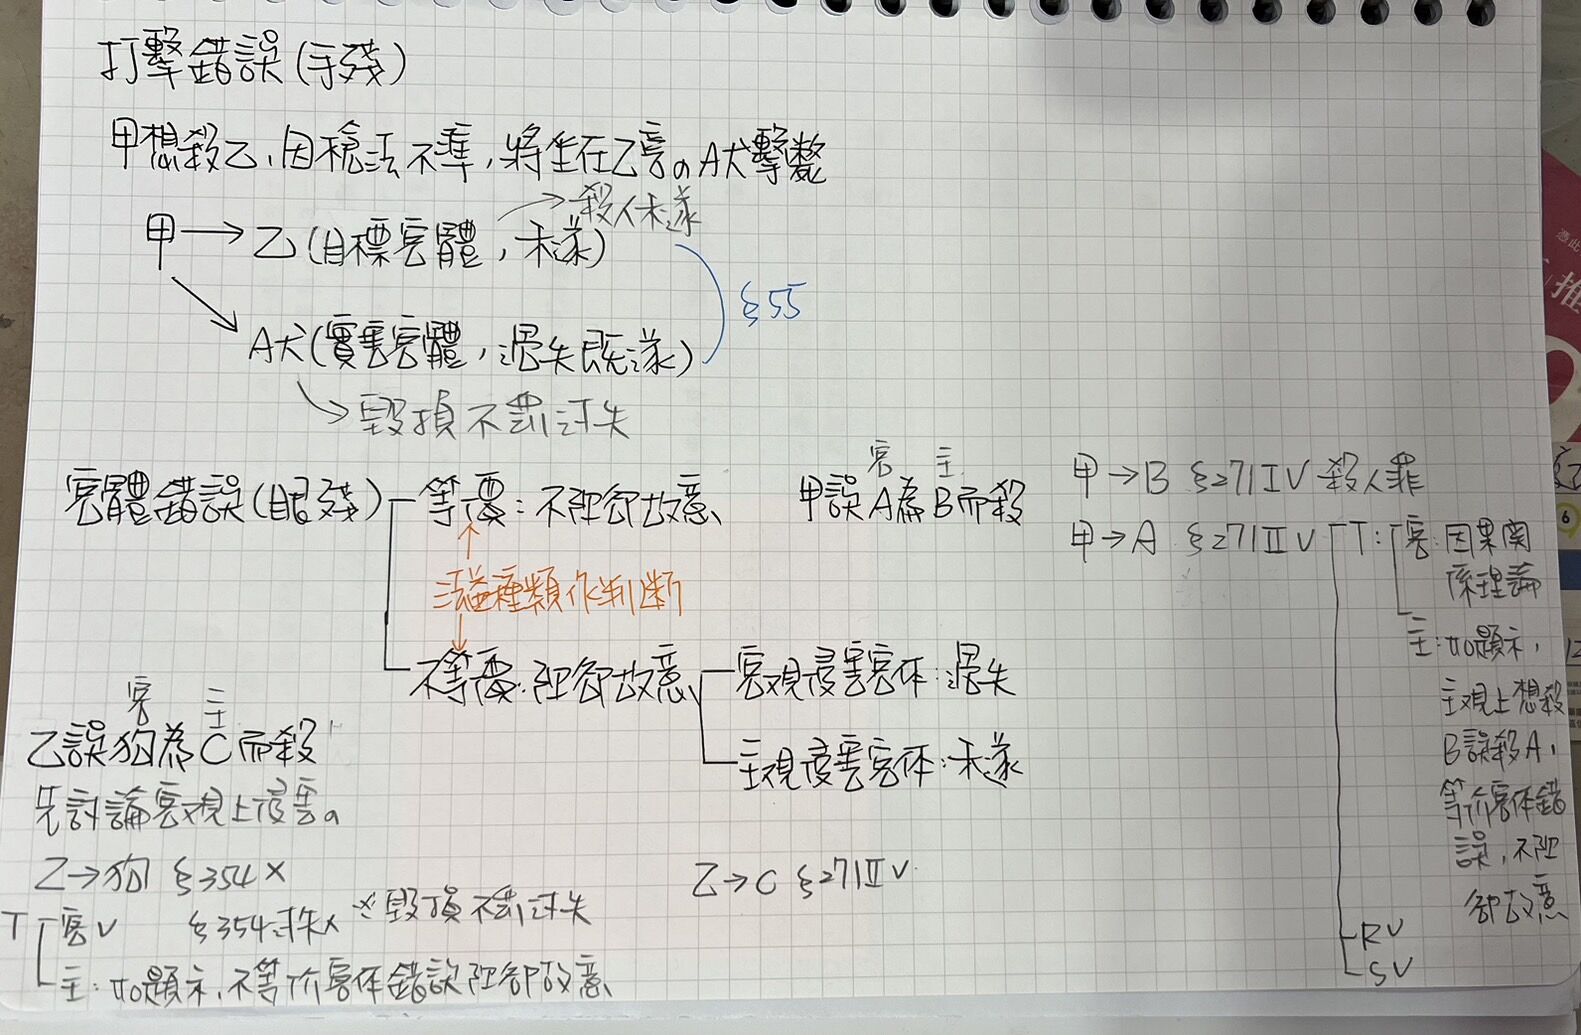 打擊錯誤(手殘)
甲想殺乙,因槍法不準,將坐在乙旁の A犬擊斃
甲→乙(目標客體,未遂)
→殺人未遂
§55
A犬(實害客體,過失既遂)
→毀損不罰过失
客體錯誤(眼殘)
等價:不阻卻故意
法益種類作判斷
不等價:阻卻故意
客觀侵害客体:過失
主觀侵害客体:未遂
客 主
甲誤A為B而殺
甲→B §271ⅠV 殺人罪
甲→A §271ⅡV
T:
客:因果関
係理論
主:如題示,
主觀上想殺
B誤殺A,
等价客体錯
誤,不阻
卻故意
RV
SV
客 主
乙誤狗為C而殺
先討論客觀上侵害の
乙→狗 §354 X
T
客V
§354过失X ※毀損不罰过失
主:如題示,不等价客体錯誤阻卻故意
乙→C §271ⅡV
憑此
推
6